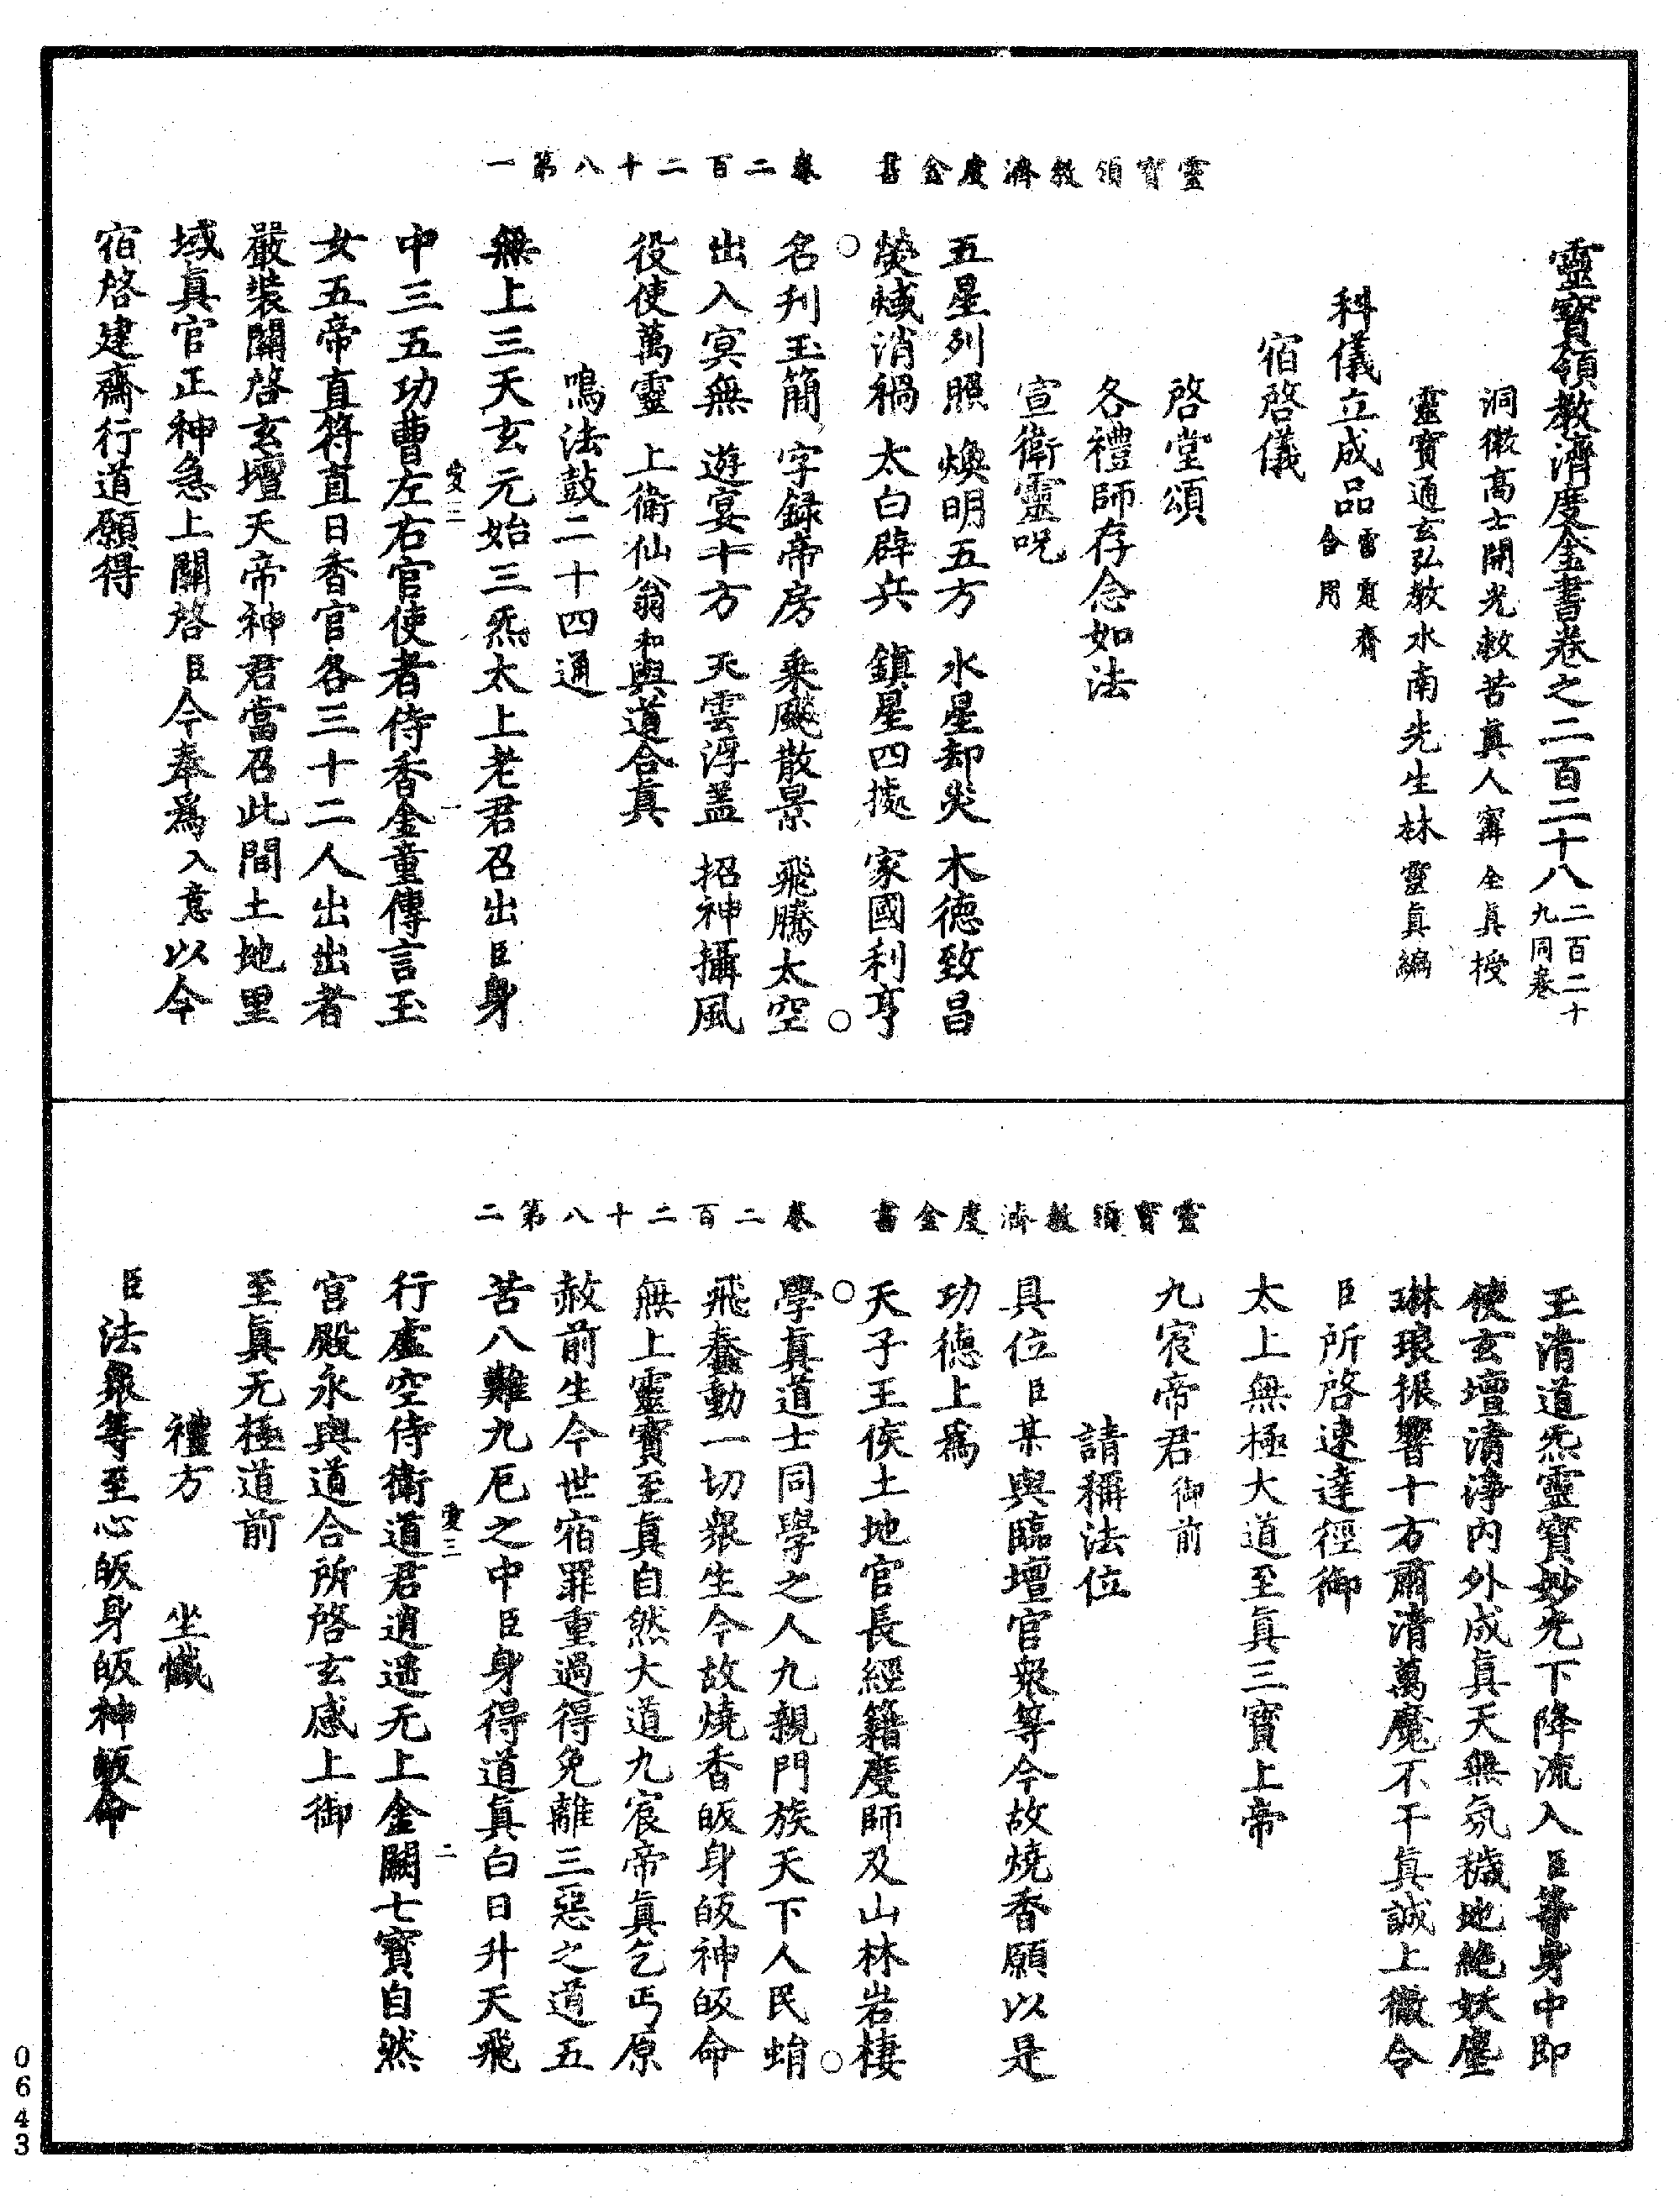 靈寶領教濟度金書　卷二百二十八第一
靈寶領教濟度金書卷之二百二十八二百二十九同卷
洞微高士開光救苦真人甯全真授
靈寶通玄弘教水南先生林靈真編
科儀立成品雷霆齋合用
宿啓儀
啓堂頌
各禮師存念如法
宣衛靈呪
五星列照　煥明五方　水星却災　木德致昌
熒惑消禍　太白辟兵　鎮星四據　家國利亨
名刋玉簡　字録帝房　乗飈散景　飛騰太空
出入冥無　遊宴十方　天雲浮蓋　招神攝風
役使萬靈　上衛仙翁和與道合真
鳴法鼓二十四通
無上三天玄元始三炁太上老君召出臣身
中三五功曹左右官使者侍香金童傳言玉
女五帝直符直日香官各三十二人出出者
嚴裝關啓玄壇天帝神君當召此間土地里
域真官正神急上關啓臣今奉爲入意以今
宿啓建齋行道願得
愛三　一
靈寶領教濟度金書　卷二百二十八第二
王清道炁靈寶妙光下降流入臣等身中即
使玄壇清淨内外成真天無氛穢地絶妖塵
琳琅振響十方肅清萬魔不干真誠上徹令
臣所啓速達徑御
太上無極大道至真三寶上帝
九宸帝君御前
請稱法位
具位臣某與臨壇官衆等今故燒香願以是
功德上爲
天子王侯土地官長經籍度師及山林岩棲
學真道士同學之人九親門族天下人民蜎
飛蠢動一切衆生今故燒香皈身皈神皈命
無上靈寶至真自然大道九宸帝真乞丐原
赦前生今世宿罪重過得免離三惡之道五
苦八難九厄之中臣身得道真白日升天飛
行虛空侍衛道君逍遥无上金闕七寶自然
宮殿永與道合所啓玄感上御
至真无極道前
禮方　坐懺
臣法衆等至心皈身皈神皈命
愛三　二
0643